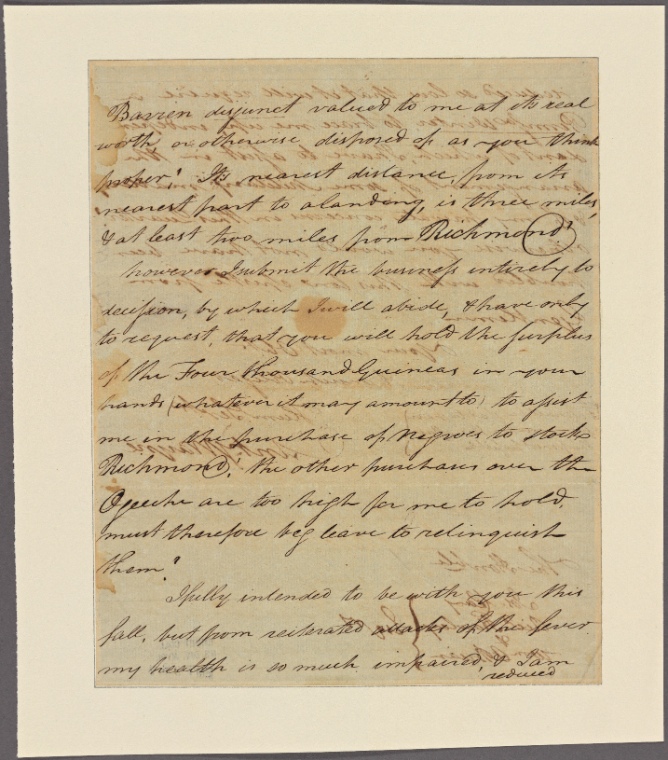 Barren disjunct valued to me at its real
worth, or otherwise disposed of as you think
proper! Its nearest distance, from its
nearest part to a landing, is three miles,
& at least two miles from Richmond!
however I submit the business entirely to
decission, by which I will abide, & have only
to request, that you will hold the surplus
of the Four thousand Guineas in your
hands (whatever it may amount to) to assist
me in the purchase of negroes to stock
Richmond, the other purchases over the
Ogeeche are too high for me to hold,
must therefore beg leave to relinquish
them!
I fully intended to be with you this
fall, but from reiterated attacks of the fever
my health is so much impaired, & I am
reduced